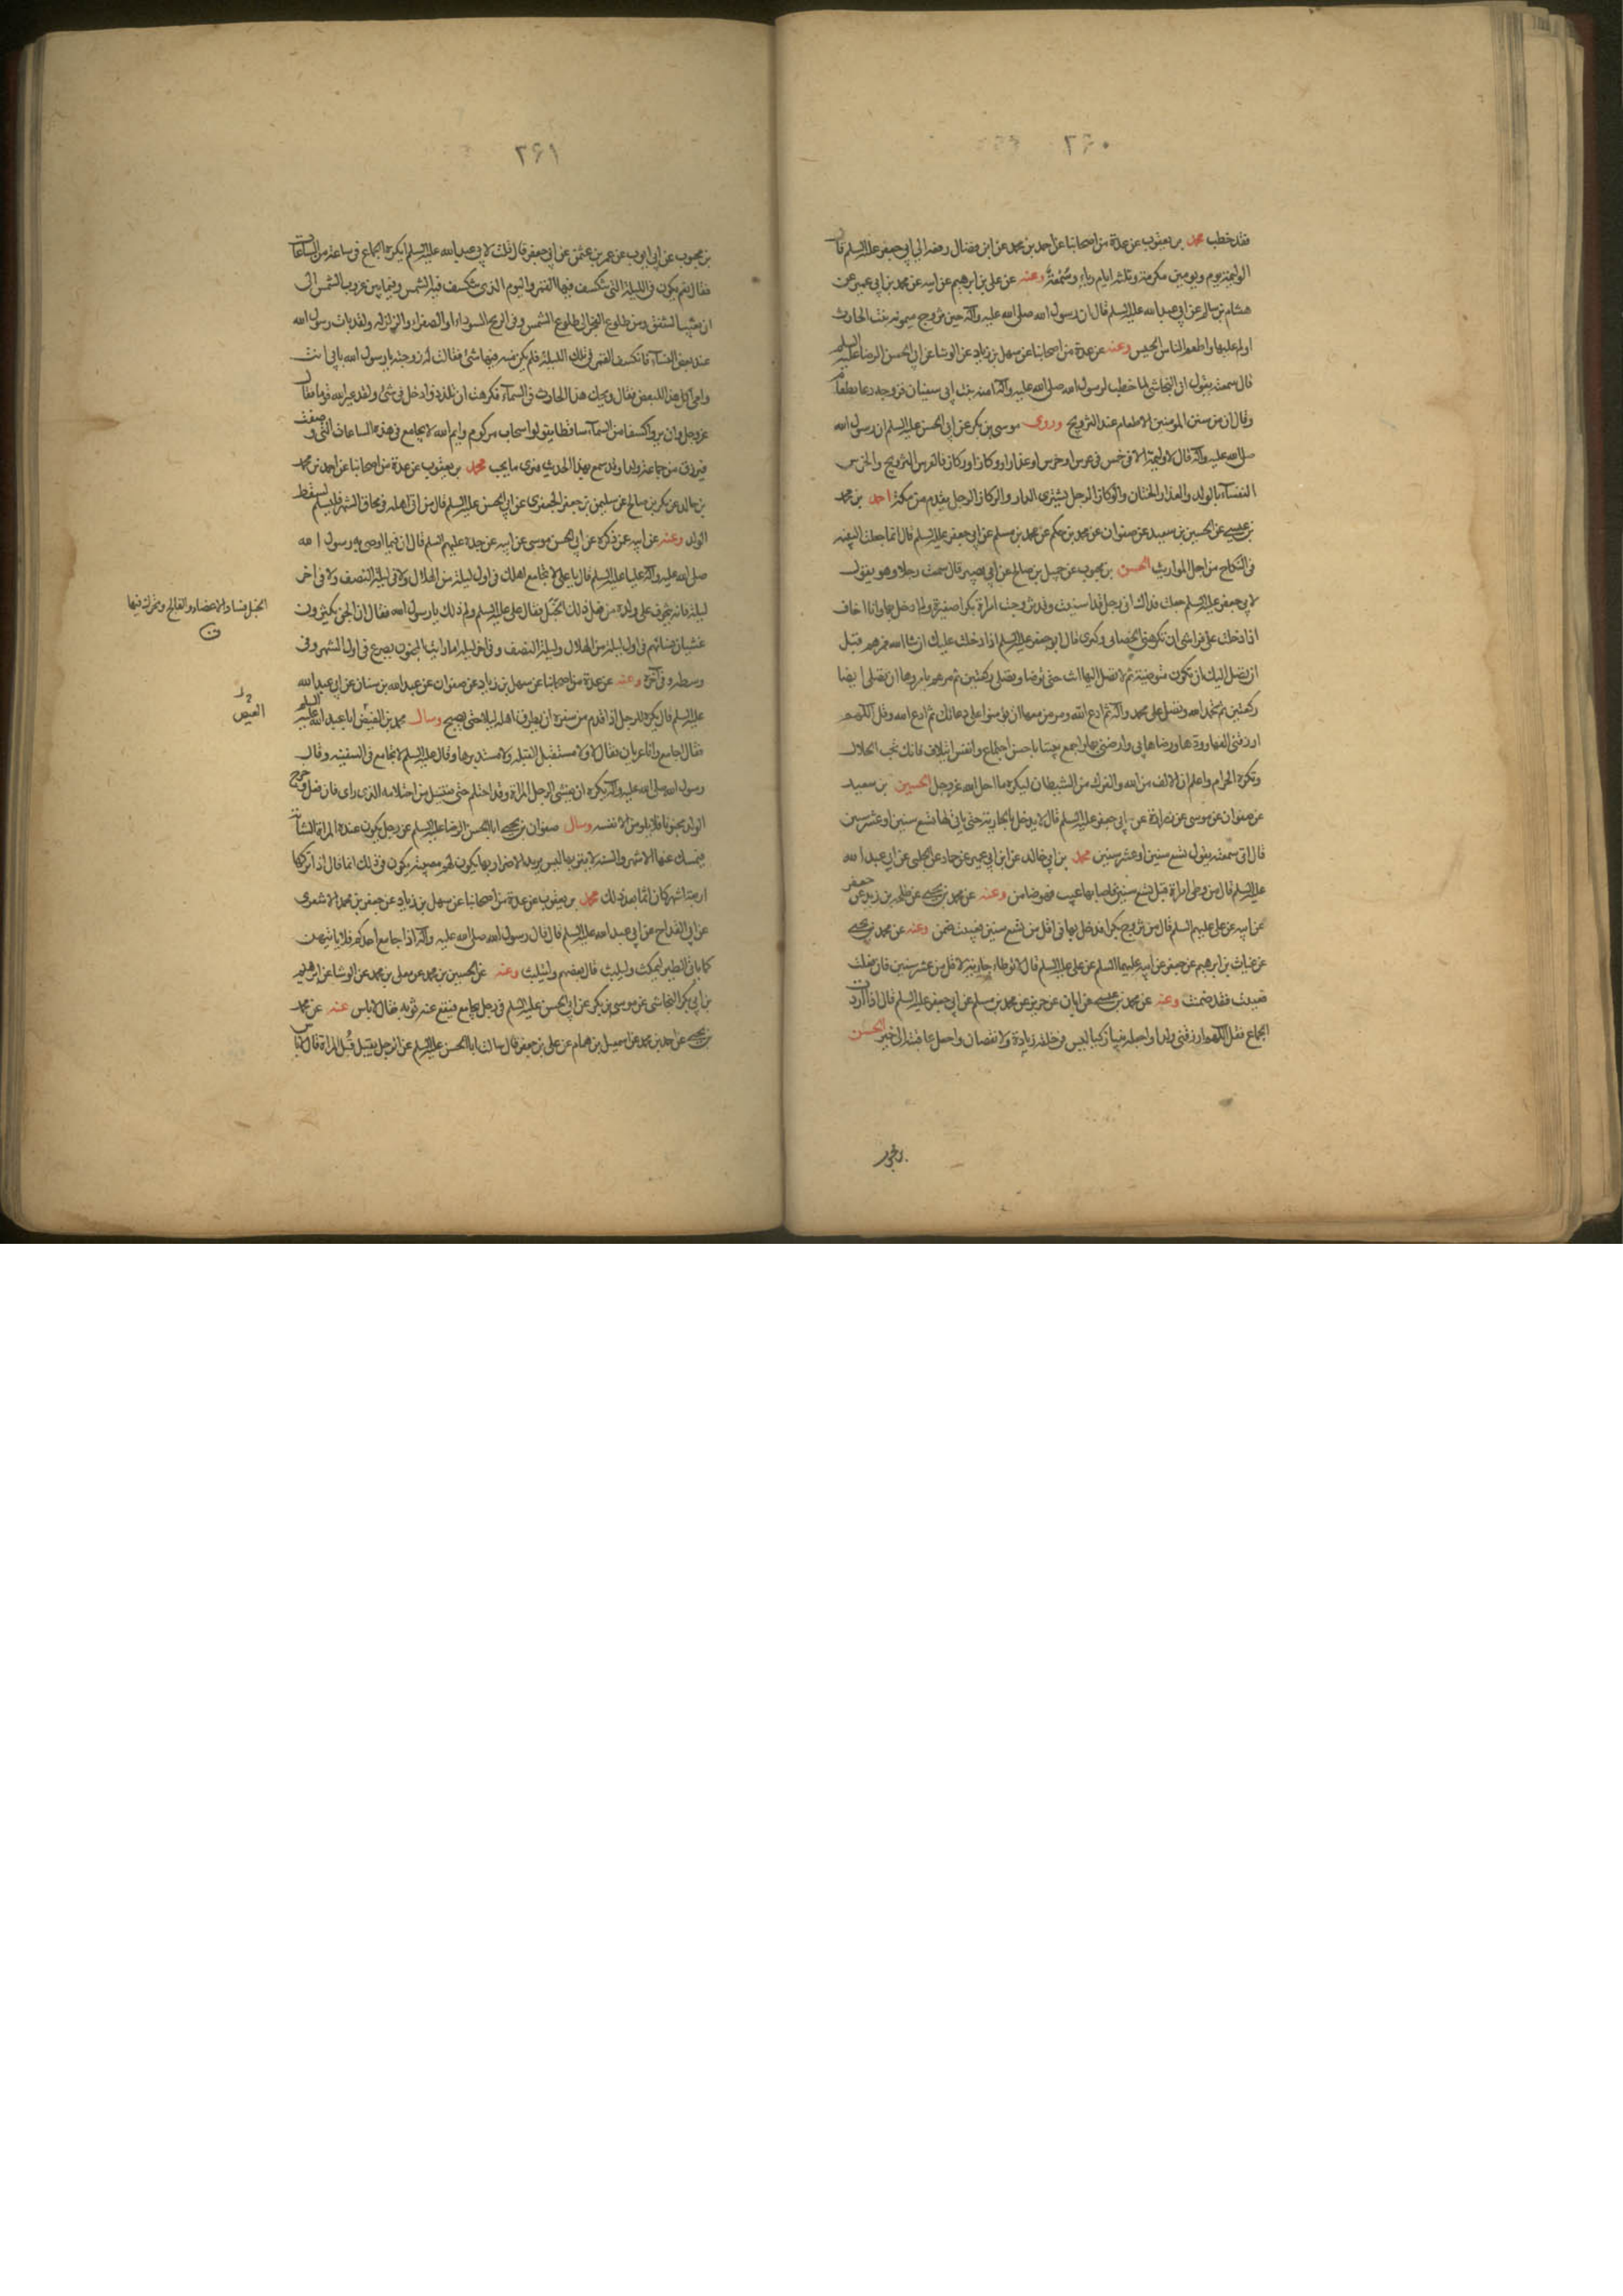 ٢٦٠
فقد خطب محمد بن يعقوب عن عدة من اصحابنا عن احمد بن محمد عن ابن فضال رفعه الى ابي جعفر عليه السلم قال
الوليمة يوم ويومين مكرمة وثلثة ايام رياء وسمعة وعنه عن علي بن ابرهيم عن ابيه عن محمد بن ابي عمير عن
هشام بن سالم عن ابي عبد الله عليه السلم قال ان رسول الله صلى الله عليه وآله حين تزوج ميمونه بنت الحارث
اولم عليها واطعم الناس الحيس وعنه عن عدة من اصحابنا عن سهل بن زياد عن الوشا عن ابي الحسن الرضا عليه السلم
قال سمعته يقول ان النجاشي لما خطب لرسول الله صلى الله عليه وآله امنه بنت ابي سفيان فزوجه دعا بطعام
وقال ان من سنن المومنين الاطعام عند التزويج وروى موسى بن بكر عن ابي الحسن عليه السلم ان رسول الله
صلى الله عليه وآله قال لا وليمة الا في خمس في عرس او خرس او عذار او وكاز او ركاز فالعرس التزويج والخرس
النفساء بالولد والعذار الختان والوكاز الرجل يشترى الدار والركاز الرجل يقدم من مكة احمد بن محمد
بن عيسى عن الحسين بن سعيد عن صفوان عن محمد بن حكيم عن محمد بن مسلم عن ابي جعفر عليه السلم قال انما جعلت البينه
في النكاح من اجل المواريث الحسن بن محبوب عن جميل بن صالح عن ابي بصير قال سمعت رجلا وهو يقول
لابي جعفر عليه السلم جعلت فداك اني رجل قد اسننت وقد تزوجت امراة بكرا صغيرة ولم ادخل بها وانا اخاف
اذا دخلت على فراشي ان تكرهني لخضابي وكبرى قال ابو جعفر عليه السلم اذا دخلت عليك ان شا الله فمرهم قبل
ان تصل اليك ان تكون متوضئة ثم لا تصل اليها انت حتى توضا وتصلي ركعتين ثم مرهم يامروها ان تصلي ايضا
ركعتين ثم تحمد الله وتصلي على محمد وآله ثم ادع الله ومر من معها ان يؤمنوا على دعائك ثم ادع الله وقل اللهم
ارزقني الفها وودها ورضاها بي وارضني بها واجمع بيننا باحسن اجتماع وانفس ايتلاف فانك تحب الحلال
وتكره الحرام واعلم ان الالف من الله والفرك من الشيطان ليكره ما احل الله عز وجل الحسين بن سعيد
عن صفوان عن موسى عن زرارة عن ابي جعفر عليه السلم قال لا يدخل بالجارية حتى ياتي لها تسع سنين او عشر سنين
قال اني سمعته يقول تسع سنين او عشر سنين محمد بن ابي خالد عن ابن ابي عمير عن حماد عن الحلبي عن ابي عبد الله
عليه السلم قال من وطي امراة قبل تسع سنين فاصابها عيب فهو ضامن وعنه عن محمد بن يحيى عن طلحه بن زيد عن جعفر
عن ابيه عن علي عليهم السلم قال من تزوج بكرا فدخل بها في اقل من تسع سنين فعيبت ضمن وعنه عن محمد بن يحيى
عن غياث بن ابرهيم عن جعفر عن ابيه عليهما السلم عن علي عليه السلم قال لا توطاء جارية لاقل من عشر سنين فان فعلت
فعيبت فقد ضمنت وعنه عن محمد بن عيسى عن ابان عن حريز عن محمد بن مسلم عن ابي جعفر عليه السلم قال اذا اردت
الجماع فقل اللهم ارزقني ولدا واجعله تقيا زكيا ليس في خلقه زيادة ولا نقصان واجعل عاقبته الى خير الحسن
بن محبوب
٢٦١
بن محبوب عن ابي ايوب عن عمر بن عثمن عن ابي جعفر قال قلت لابي عبد الله عليه السلم ايكره الجماع في ساعة من الساعات
فقال نعم يكون في الليلة التي تنكسف فيها القمر واليوم الذي تنكسف فيه الشمس وفيما بين غروب الشمس الى
ان يغيب الشفق ومن طلوع الفجر الى طلوع الشمس وفي الريح السوداء او الصفراء والزلزله ولقد بات رسول الله
عند بعض النساء فانكسف القمر في تلك الليلة فلم يكن منه فيها شئ فقالت له زوجته يا رسول الله بابي انت
وامي اكل هذا للبغض فقال ويحك هذا الحادث في السماء فكرهت ان تلذذ وادخل في شئ ولقد عير الله قوما فقال
عز وجل وان يروا كسفا من السماء ساقطا يقولوا سحاب مركوم وايم الله لا يجامع في هذه الساعات التي وصفت
فيرزق من جماعه ولدا وقد سمع بهذا الحديث فيرى ما يحب محمد بن يعقوب عن عدة من اصحابنا عن احمد بن محمد
بن خالد عن بكر بن صالح عن سليمن بن جعفر الجعفرى عن ابي الحسن عليه السلم قال من اتى اهله في محاق الشهر فليسلم لسقط
الولد وعنه عن ابيه عمن ذكره عن ابي الحسن موسى عن ابيه عن جده عليهم السلم قال ان فيما اوصى به رسول الله
صلى الله عليه وآله عليا عليه السلم قال يا علي لا تجامع اهلك في اول ليلة من الهلال ولا في ليلة النصف ولا في اخر
ليلة فانه يتخوف على ولده من فعل ذلك الخبل فقال علي عليه السلم ولم ذلك يا رسول الله فقال ان الجن يكثرون
غشيان نسائهم في اول ليلة من الهلال وليلة النصف وفي اخر ليلة اما رايت المجنون يصرع في اول الشهر وفي
وسطه وفي آخره وعنه عن عدة من اصحابنا عن سهل بن زياد عن صفوان عن عبد الله بن سنان عن ابي عبد الله
عليه السلم قال يكره للرجل اذا قدم من سفره ان يطرق اهله ليلا حتى يصبح وسال محمد بن الفيض ابا عبد الله عليه السلم
فقال اجامع وانا عريان فقال لا ولا مستقبل القبلة ولا مستدبرها وقال عليه السلم لا تجامع في السفينه وقال
رسول الله صلى الله عليه وآله يكره ان يغشى الرجل المراة وقد احتلم حتى يغتسل من احتلامه الذي راى فان فعل وخرج
الولد مجنونا فلا يلومن الا نفسه وسال صفوان بن يحيى ابا الحسن الرضا عليه السلم عن رجل يكون عنده المراة الشابة
فيمسك عنها الاشهر والسنة لا يقربها ليس يريد الاضرار بها يكون لهم مصيبة يكون في ذلك اثما قال اذا تركها
اربعة اشهر كان اثما بعد ذلك محمد بن يعقوب عن عدة من اصحابنا عن سهل بن زياد عن جعفر بن محمد الاشعرى
عن ابن القداح عن ابي عبد الله عليه السلم قال قال رسول الله صلى الله عليه وآله اذا جامع احدكم فلا ياتيهن
كما ياتي الطير ليمكث وليلبث قال بعضهم وليتلبث وعنه عن الحسين بن محمد عن معلى بن محمد عن الوشا عن ابرهيم
بن ابي بكر النحاس عن موسى بن بكر عن ابي الحسن عليه السلم في رجل يجامع فيقع عنه ثوبه فقال لا باس عنه عن محمد
بن يحيى عن احمد بن محمد عن اسمعيل بن همام عن علي بن جعفر قال سالت ابا الحسن عليه السلم عن الرجل يقبل قبل المراة قال لا باس
الخبل فساد الاعضاء والفالج ويحرك فيها
ق
العيص